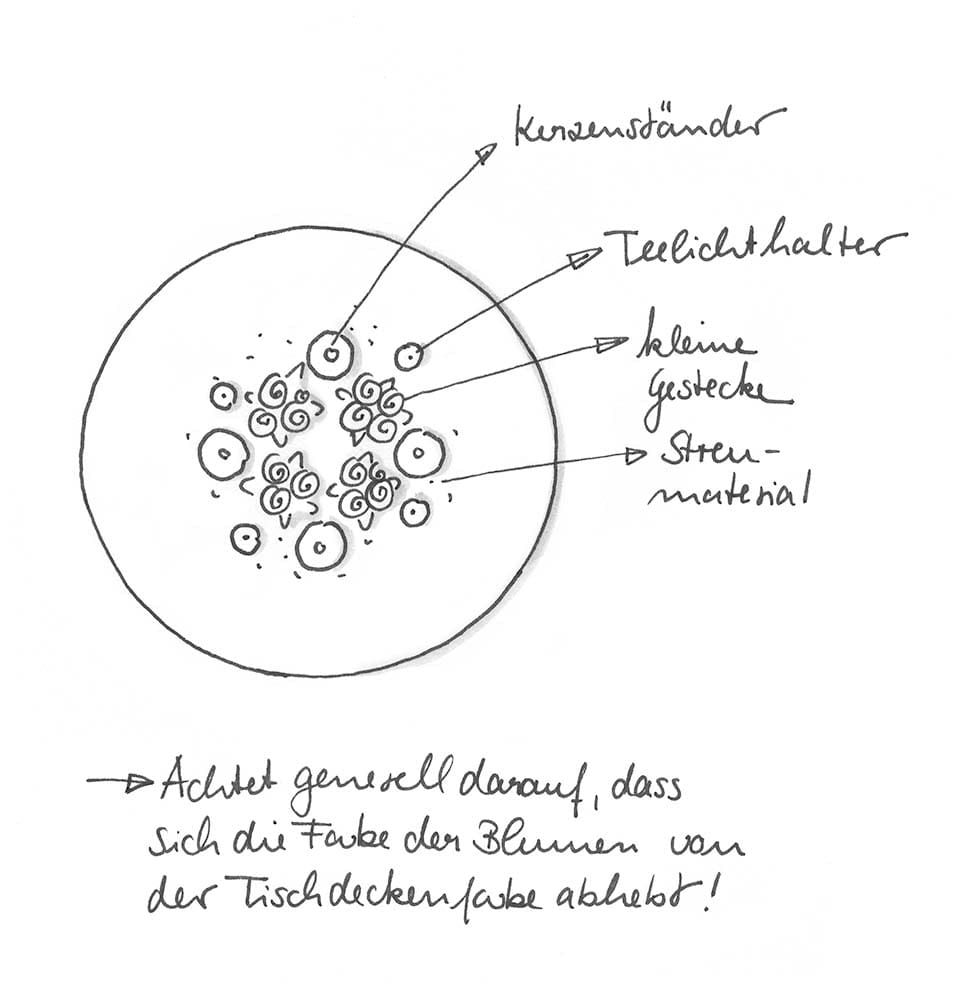 Kerzenständer
Teelichthalter
kleine
Gestecke
Streu-
material
Achtet generell darauf, dass
sich die Farbe der Blumen von
der Tischdeckenfarbe abhebt!